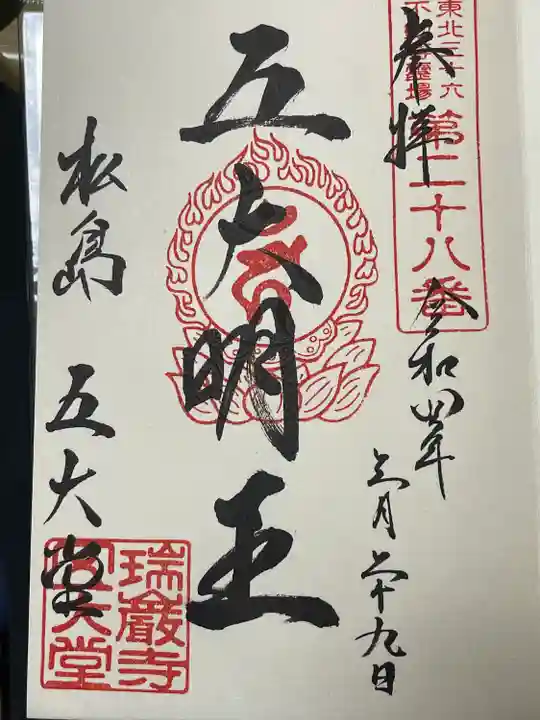 奉拝
東北三十六
不動尊霊場
第二十八番
令和四年
三月二十九日
五大明王
松島 五大堂
瑞巖寺
五大堂